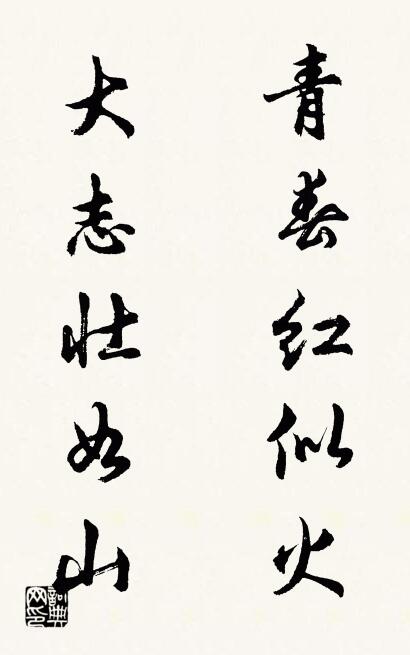 青春红似火
大志壮如山